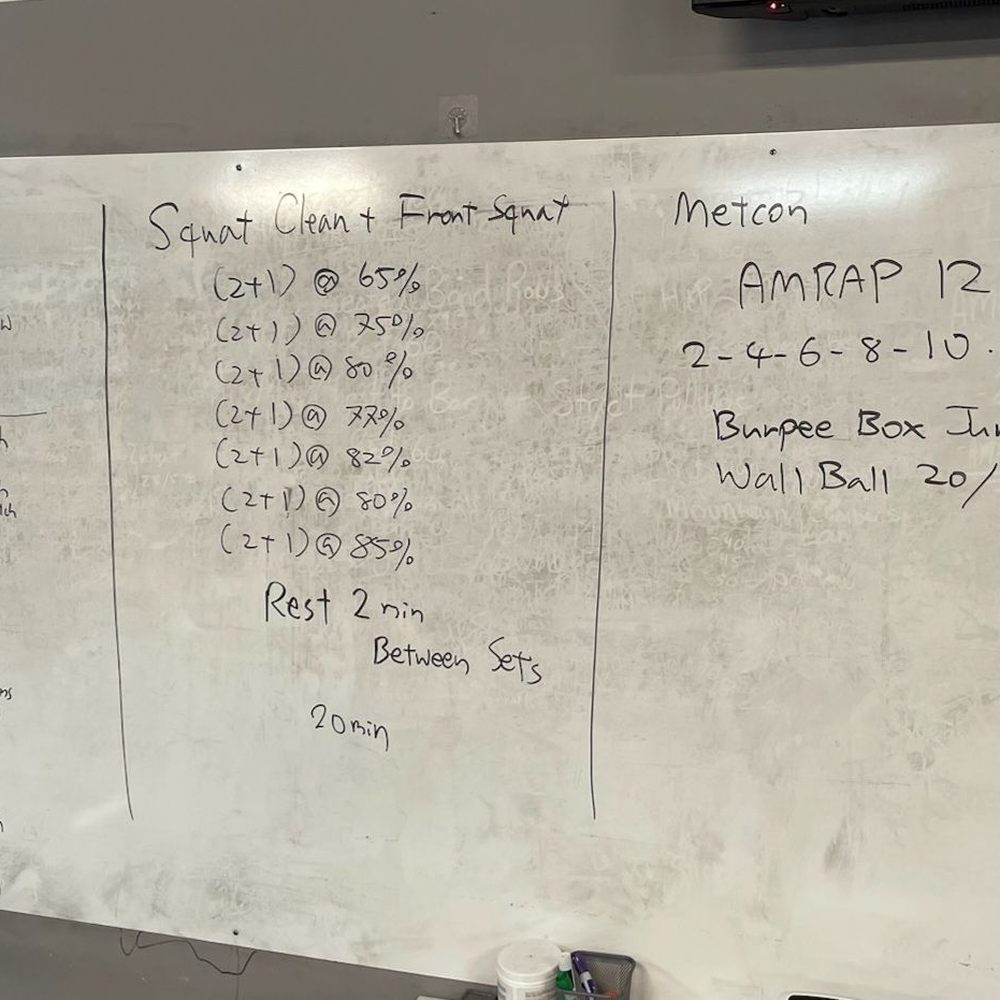 Squat Clean + Front Squat
(2+1) @ 65%
(2+1) @ 75%
(2+1) @ 80%
(2+1) @ 77%
(2+1) @ 82%
(2+1) @ 80%
(2+1) @ 85%
Rest 2 min
Between Sets
20min
Metcon
AMRAP 12
2-4-6-8-10.
Burpee Box
Wall Ball 20/